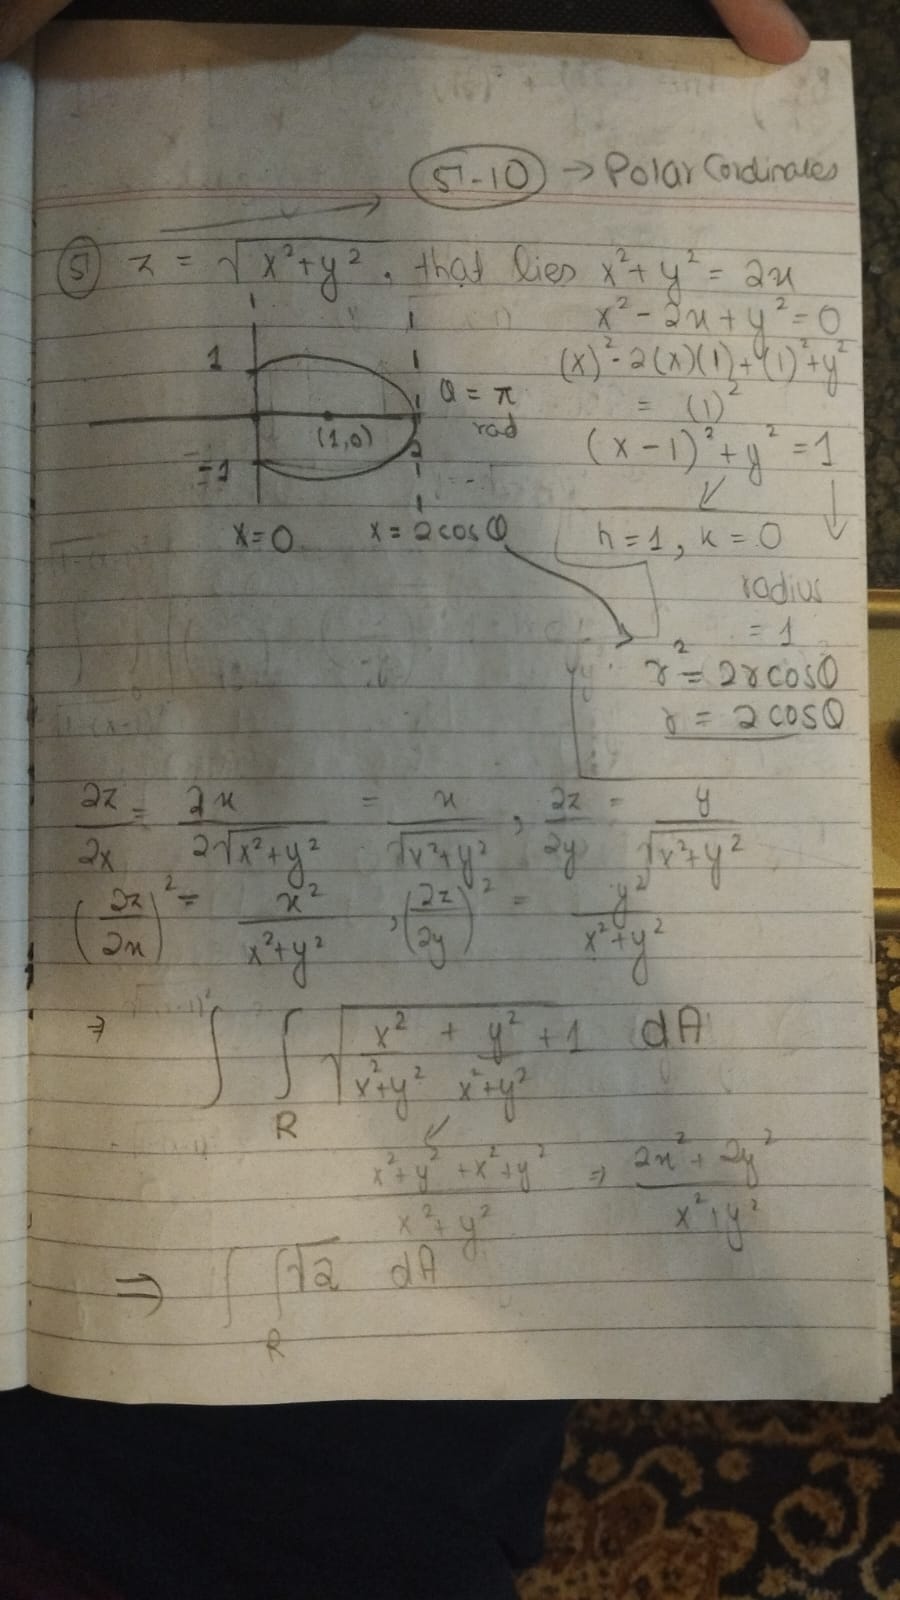 5-10 → Polar Cordinates
5 z = √x²+y², that lies x²+y² = 2x
x² - 2x + y² = 0
(x)² - 2(x)(1) + (1)² + y²
= (1)²
(x-1)² + y² = 1
h = 1, k = 0
radius
= 1
r² = 2rcosθ
r = 2cosθ
1
(1,0)
2
-1
θ = π
rad
x=0
x = 2cosθ
∂z/∂x = 2x/2√x²+y² = x/√x²+y² , ∂z/∂y = y/√x²+y²
(∂z/∂x)² = x²/x²+y² , (∂z/∂y)² = y²/x²+y²
⇒ ∫∫R √x²/x²+y² + y²/x²+y² + 1 dA
x²+y²+x²+y²/x²+y² ⇒ 2x²+2y²/x²+y²
⇒ ∫∫R √2 dA